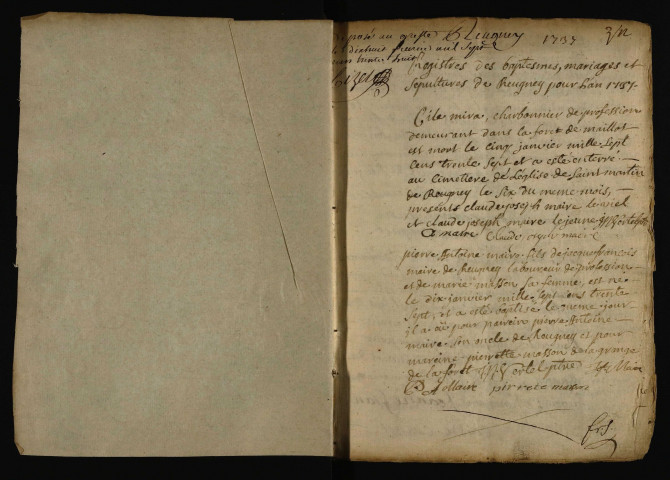 deposé au greffe Reugney 1737
le dixhuit fevrier mil sept
cens trente huit
Registres des baptesmes, mariages et
sepultures de Reugney pour l'an 1737.
mira, charbonnier de profession
demeurant dans la foret de maillot
est mort le cinq janvier mille sept
cens trente sept et a esté enterré
au cimetiere de l'eglise de Saint martin
de Reugney le six du meme mois,
presents claude joseph maire
et claude joseph maire le jeune
maire Claude maire
pierre Antoine maire fils de jacques francois
maire de Reugney laboureur de profession
et de marie masson sa femme, est né
le dix janvier mille sept cens trente
sept, et a esté baptisé le meme jour
il a eü pour parrein pierre Antoine
maire son oncle de Reugney et pour
mareine pierrette masson de la grange
de la foret Maire
P A Maire masson